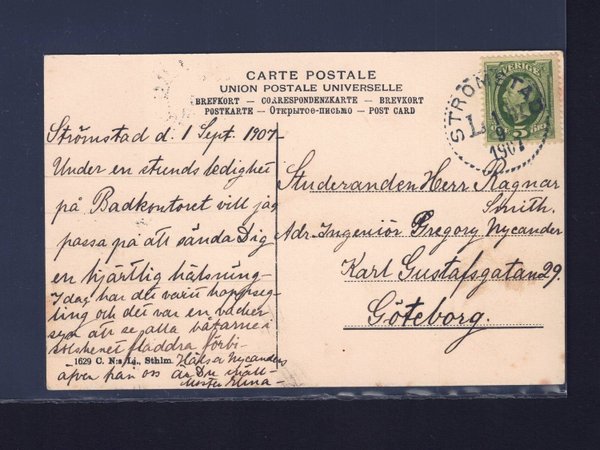 CARTE POSTALE
UNION POSTALE UNIVERSELLE
BREFKORT — CORRESPONDENZKARTE — BREVKORT
POSTKARTE — Открытое-письмо — POST CARD
SVERIGE
5 ÖRE
STRÖMSTAD
1907
Strömstad d. 1 Sept. 1907.
Under en stunds ledighet
på Badkontoret vill jag
passa på att sända Dig
en hjärtlig hälsning.
I dag har det varit kappseg-
ling och det var en vacker
syn att se alla båtarne i
solskenet fladdra förbi.
Hälsa Nycanders
äfven från oss
Studeranden Herr Ragnar
Smith.
Adr. Ingeniör Gregory Nycander
Karl Gustafsgatan 29.
Göteborg.
1629 C. N:s Lj., Sthlm.